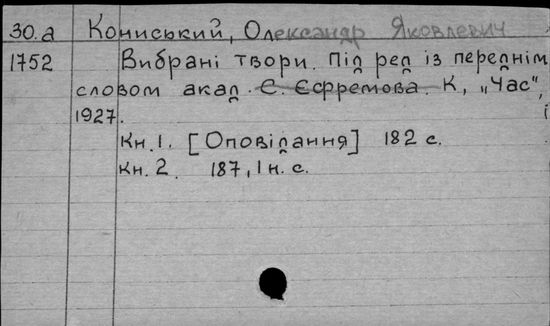 30.а Кониський, Олександр Яковлевич
1752 Вибрані твори. Під ред із переднім
словом акад. Є. Єсфремова. К, „Час",
1927.
Кн. 1. [Оповідання] 182 с.
Кн. 2. 187, 1 н. с.